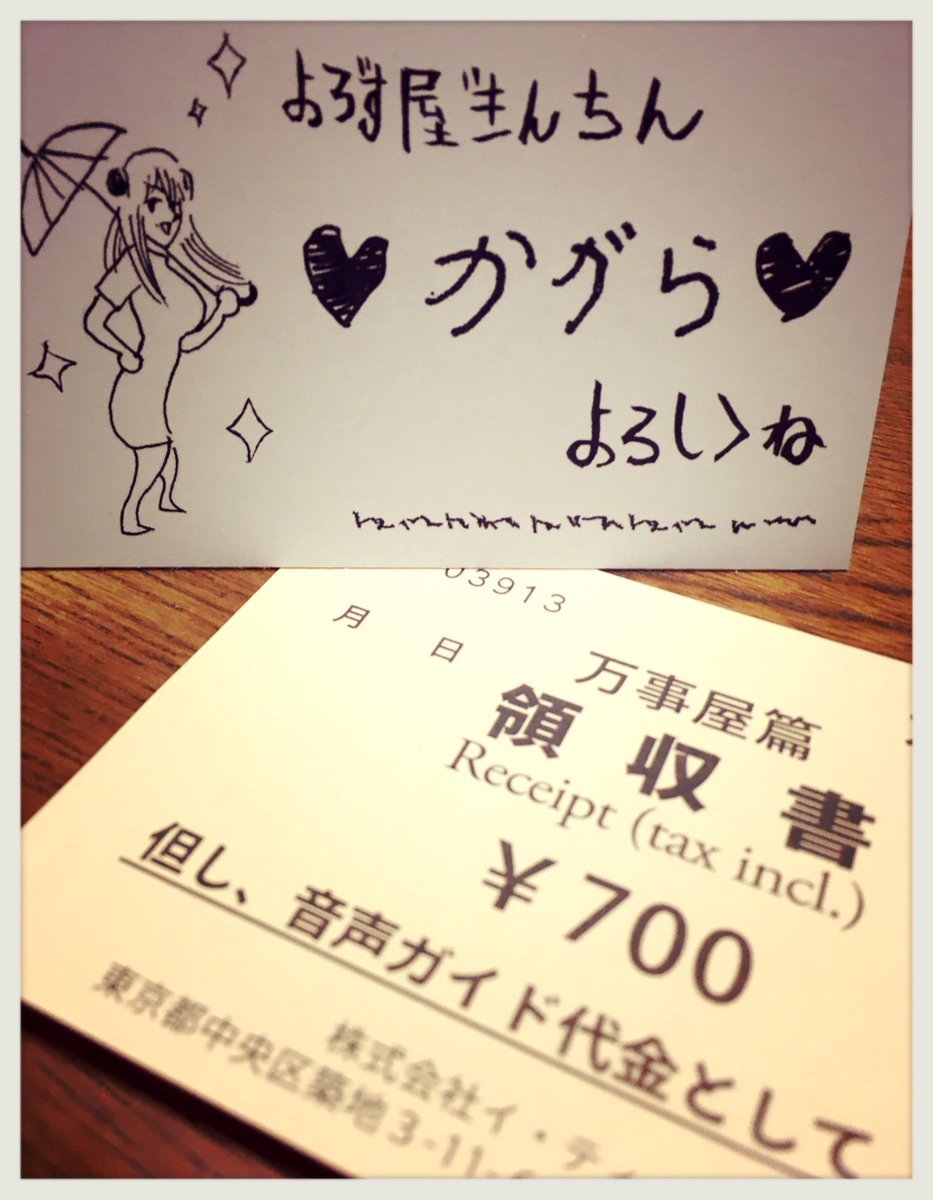 よろず屋ぎんちん
かぐら
よろしくね
03913
月 日
万事屋篇
領収書
Receipt (tax incl.)
¥700
但し、音声ガイド代金として
株式会社イ・ティ
東京都中央区築地3-11-